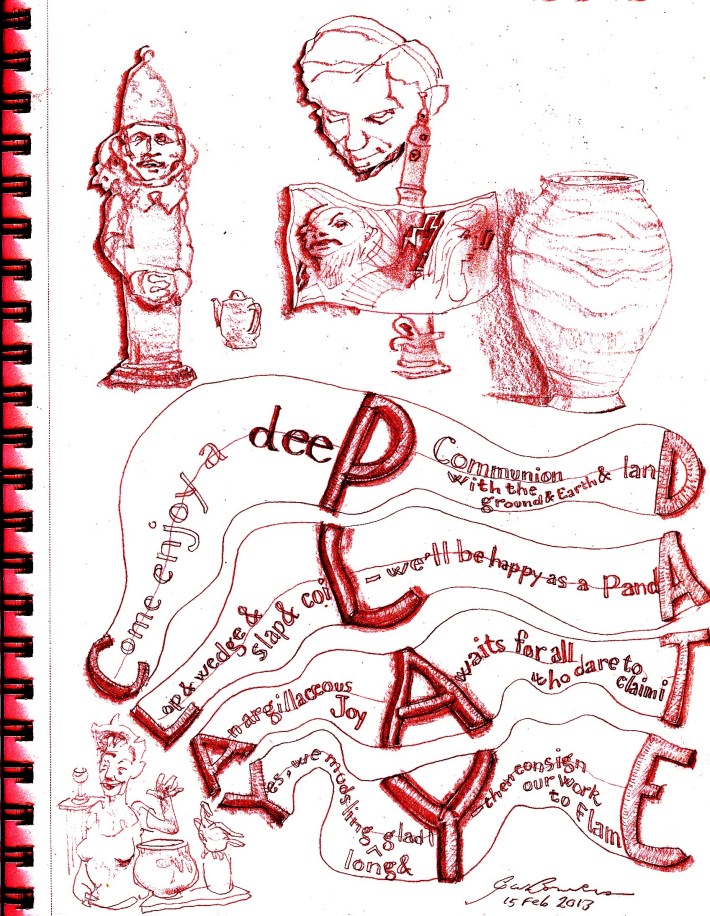 Come enjoy a deeP Communion with the ground & Earth & lanD
Lap & wedge & slap & coiL - we'll be happy as a PandA
An argillaceous Joy Awaits for all who dare to claim iT
Yes, we mudsling, long & gladlY - then consign our work to flamE
15 Feb 2013